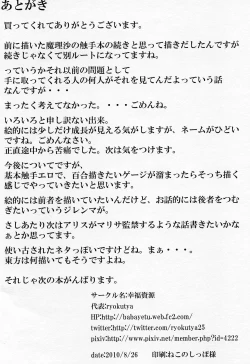 あとがき
買ってくれてありがとうございます。
前に描いた魔理沙の触手本の続きと思って描きだしたんですが
続きじゃなくて別ルートになってますね。
っていうかそれ以前の問題として
手に取ってくれる人の何人がそれを見てんだよっていう話
なんですが・・・
まったく考えてなかった。・・・ごめんね。
いろいろと申し訳ない出来。
絵的には少しだけ成長が見える気がしますが、ネームがひどい
ですね。ごめんなさい。
正直途中から苦痛でした。次は気をつけます。
今後についてですが、
基本触手エロで、百合描きたいゲージが溜まったらそっち描く
感じでやっていきたいと思います。
絵的には前者を描いていたいんだけど、お話的には後者をつむ
ぎたいっていうジレンマが。
さしあたり次はアリスがマリサ監禁するような話書きたいかな
ぁとか思ってます。
使い古されたネタっぽいですけどね。まぁ・・・。
東方は何描いてもそうですよね。
それじゃ次の本がんばります。
サークル名:幸福資源
代表:ryokutya
HP:http://babayetu.web.fc2.com/
twitter:http://twitter.com/ryokutya25
pixiv:http://www.pixiv.net/member.php?id=4222
date:2010/8/26 印刷:ねこのしっぽ様